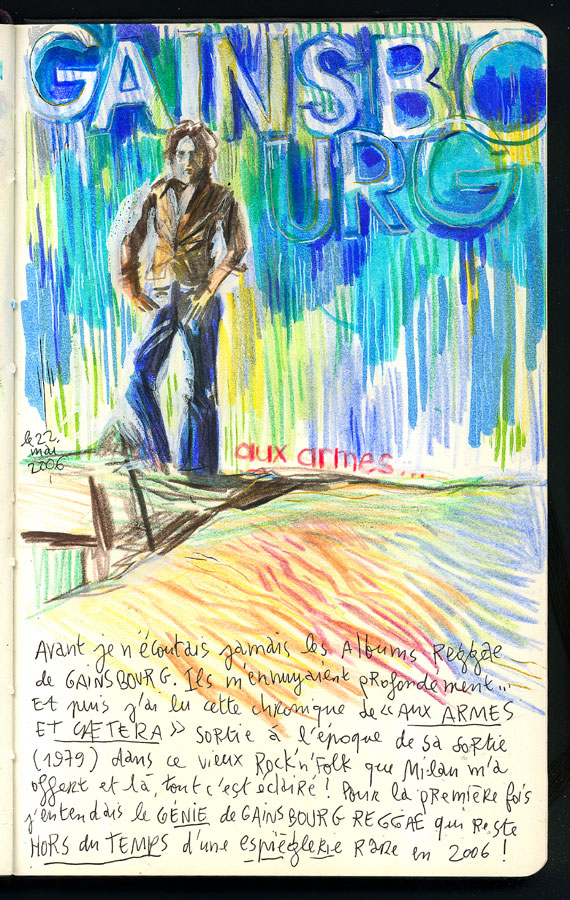 GAINSBO
URG
le 22.
mai
2006
aux armes...
Avant je n'écoutais jamais les Albums Reggae
de GAINSBOURG. Ils m'ennuyaient profondément...
Et puis j'ai lu cette chronique de «AUX ARMES
ET CÆTERA» sortie à l'époque de sa sortie
(1979) dans ce vieux Rock'n'Folk que Milan m'a
offert et là, tout c'est éclairé! Pour la première fois
j'entendais le GÉNIE de GAINSBOURG REGGAE qui Reste
HORS du TEMPS d'une espièglerie Rare en 2006!